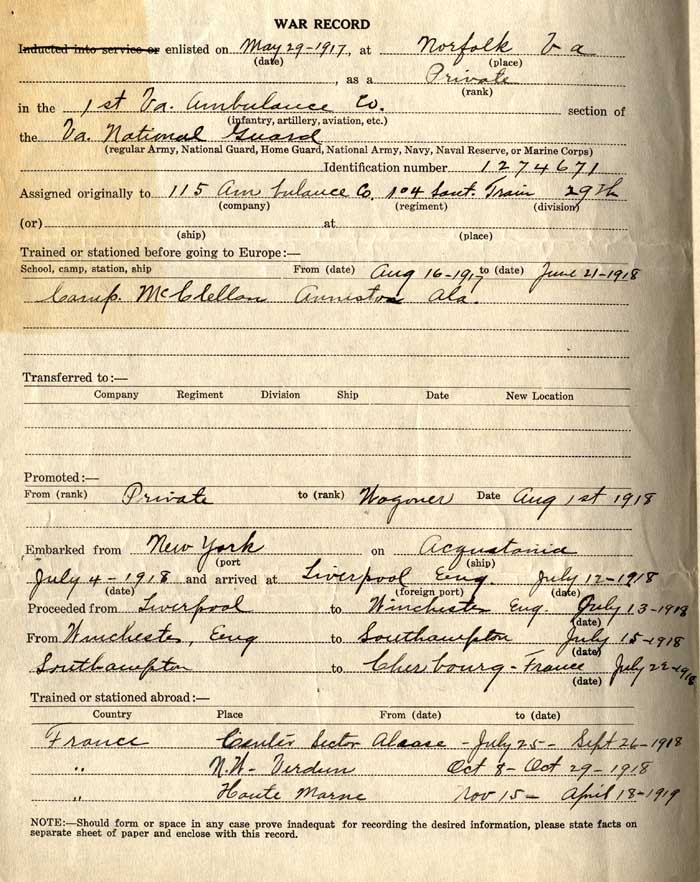 WAR RECORD
Inducted into service or enlisted on May 29-1917, at Norfolk Va
(date) (place)
, as a Private
(rank)
in the 1st Va. Ambulance Co. section of
(infantry, artillery, aviation, etc.)
the Va. National Guard
(regular Army, National Guard, Home Guard, National Army, Navy, Naval Reserve, or Marine Corps)
Identification number 1274671
Assigned originally to 115 Ambulance Co. 104 Sant. Train 29th
(company) (regiment) (division)
(or) at
(ship) (place)
Trained or stationed before going to Europe:—
School, camp, station, ship From (date) Aug 16-1917 to (date) June 21-1918
Camp. McClellan Anniston Ala.
Transferred to:—
Company Regiment Division Ship Date New Location
Promoted:—
From (rank) Private to (rank) Wagoner Date Aug 1st 1918
Embarked from New York on Acquatania
(port (ship)
July 4-1918 and arrived at Liverpool Eng. July 12-1918
(date) (foreign port) (date)
Proceeded from Liverpool to Winchester Eng. July 13-1918
(date)
From Winchester, Eng to Southampton July 15-1918
(date)
Southampton to Cherbourg-France July 22-1918
(date)
Trained or stationed abroad:—
Country Place From (date) to (date)
France Center Sector Alsase - July 25- Sept 26-1918
" N.W- Verdun Oct 8- Oct 29-1918
" Haute Marne Nov 15- April 18-1919
NOTE:—Should form or space in any case prove inadequat for recording the desired information, please state facts on
separate sheet of paper and enclose with this record.